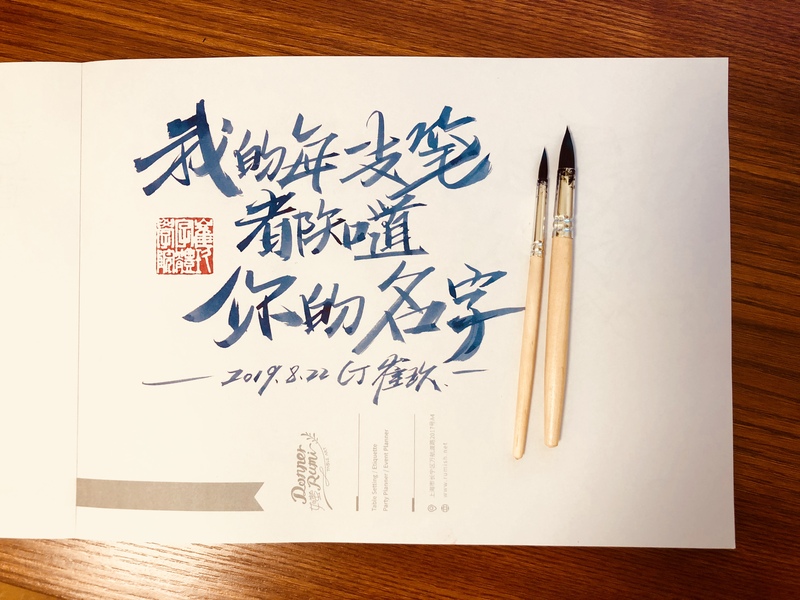 我的每支笔
都知道
你的名字
2019.8.22 CJ 崔玖.
Donner Rumi
Table Setting / Etiquette
Party Planner / Event Planner